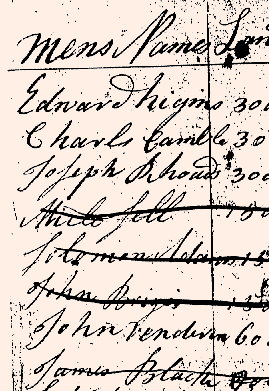 Mens Names Lan
Edward higins 300
Charls Camble 30
Joseph Rhoads 300
Sell 150
Solomon Adams 15
John 150
John Vendevin 60
James Black